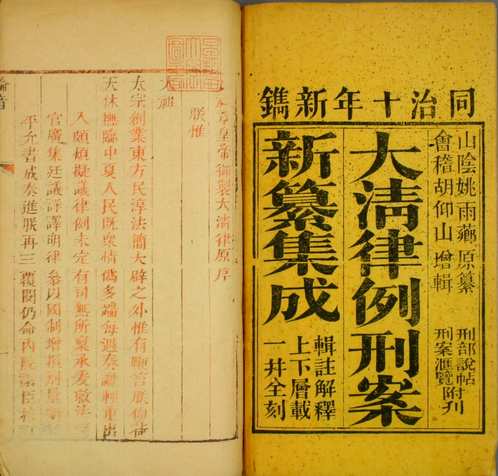 同治十年新鐫
山陰姚雨薌原纂
會稽胡仰山增輯
大清律例刑案
新纂集成
刑部說帖
刑案滙覽
附刊
輯註解釋
上下層載
一并全刻
皇帝御製大清律原序
朕惟
太宗創業東方民淳法簡大辟之外惟有鞭笞朕仰荷
天休撫臨中夏人民既衆情僞多端每遇奏讞輕重出
入頗煩擬議律例未定有司無所稟承爰敕法
官廣集廷議詳譯明律參以國制增損劑量
平允書成奏進朕再三覆閱仍命內院